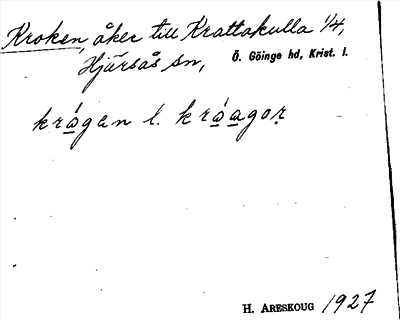 Kroken, åker till Krattakulla 1/4,
Hjärsås sn, Ö. Göinge hd, Krist. l.
krågan l. kråagor
H. ARESKOUG 1927